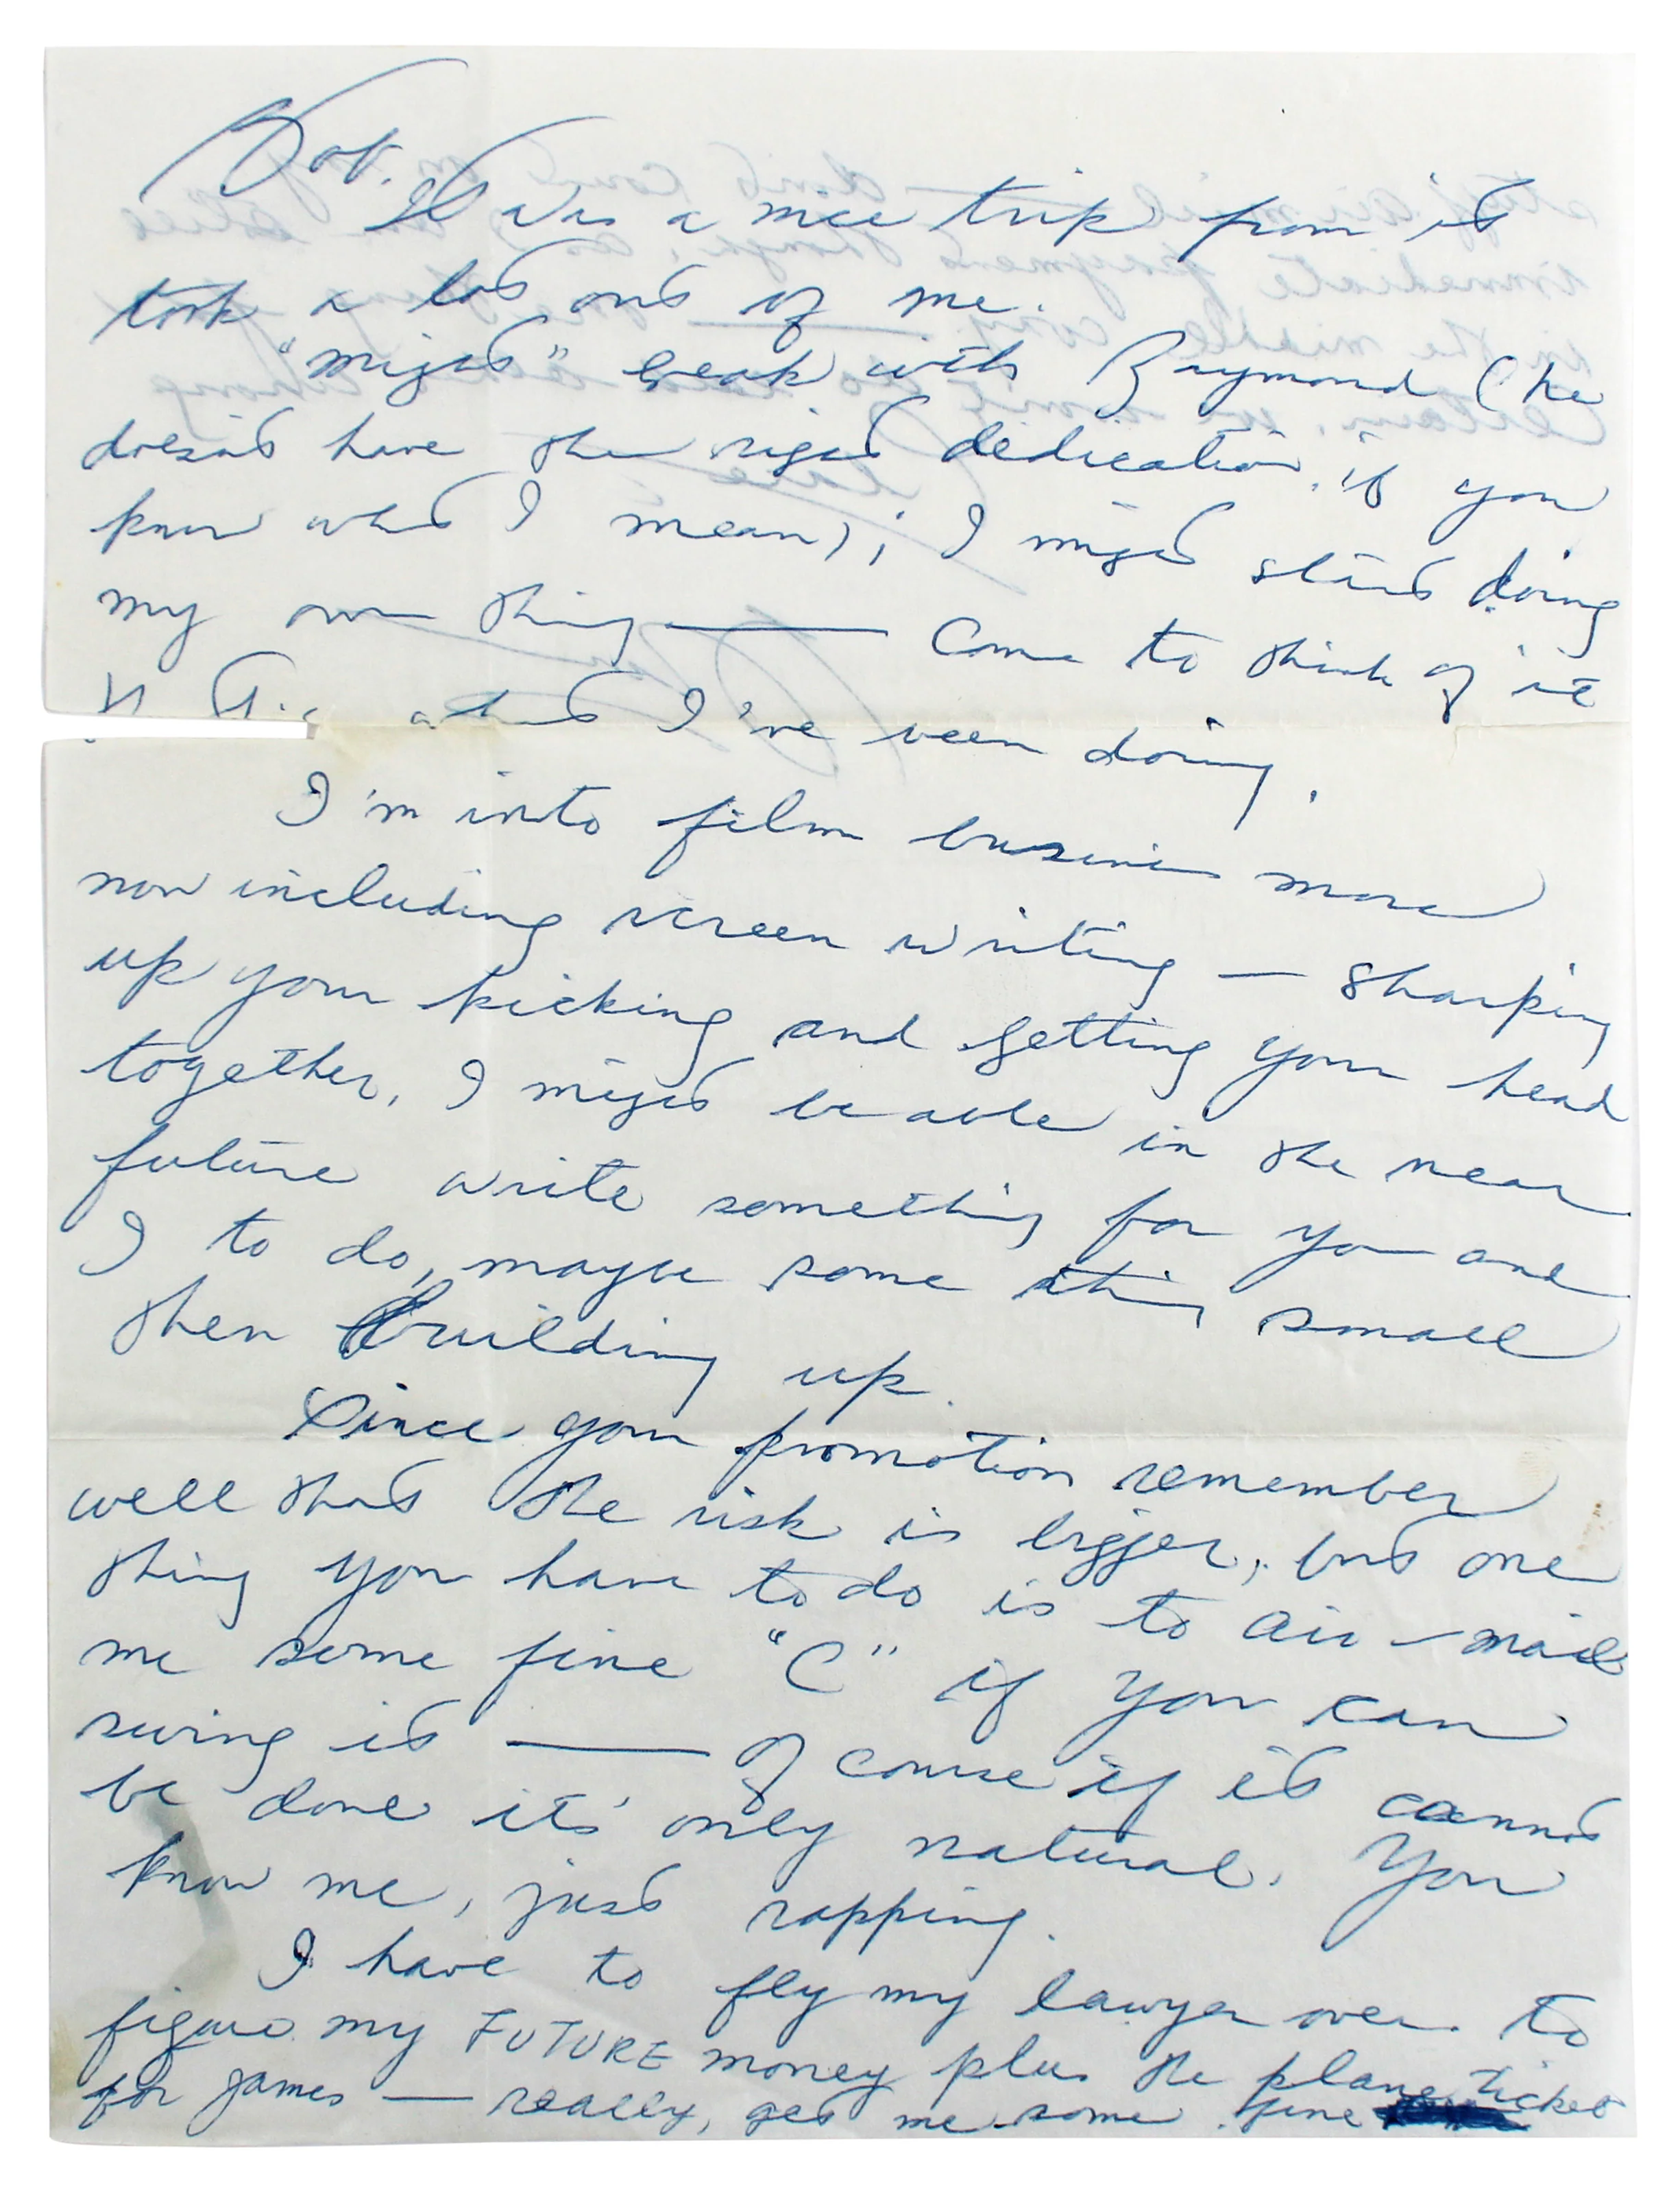 Bob.
It was a nice trip from it
took a lot out of me.
"might" break with Raymond (he
doesn't have the right dedication, if you
know what I mean); I might start doing
my own thing — Come to think of it
what I've been doing.
I'm into film business more
now including screen writing — Sharping
up your kicking and getting your head
together, I might be able in the near
future write something for you and
I to do, maybe some thing small
then building up.
Since your promotion remember
well that the risk is bigger, but one
thing you have to do is to air-mail
me some fine "C" if you can
swing it — Of course if it cannot
be done its' only natural. You
know me, just rapping.
I have to fly my lawyer over to
figure my FUTURE money plus the plane ticket
for James — really, get me some fine